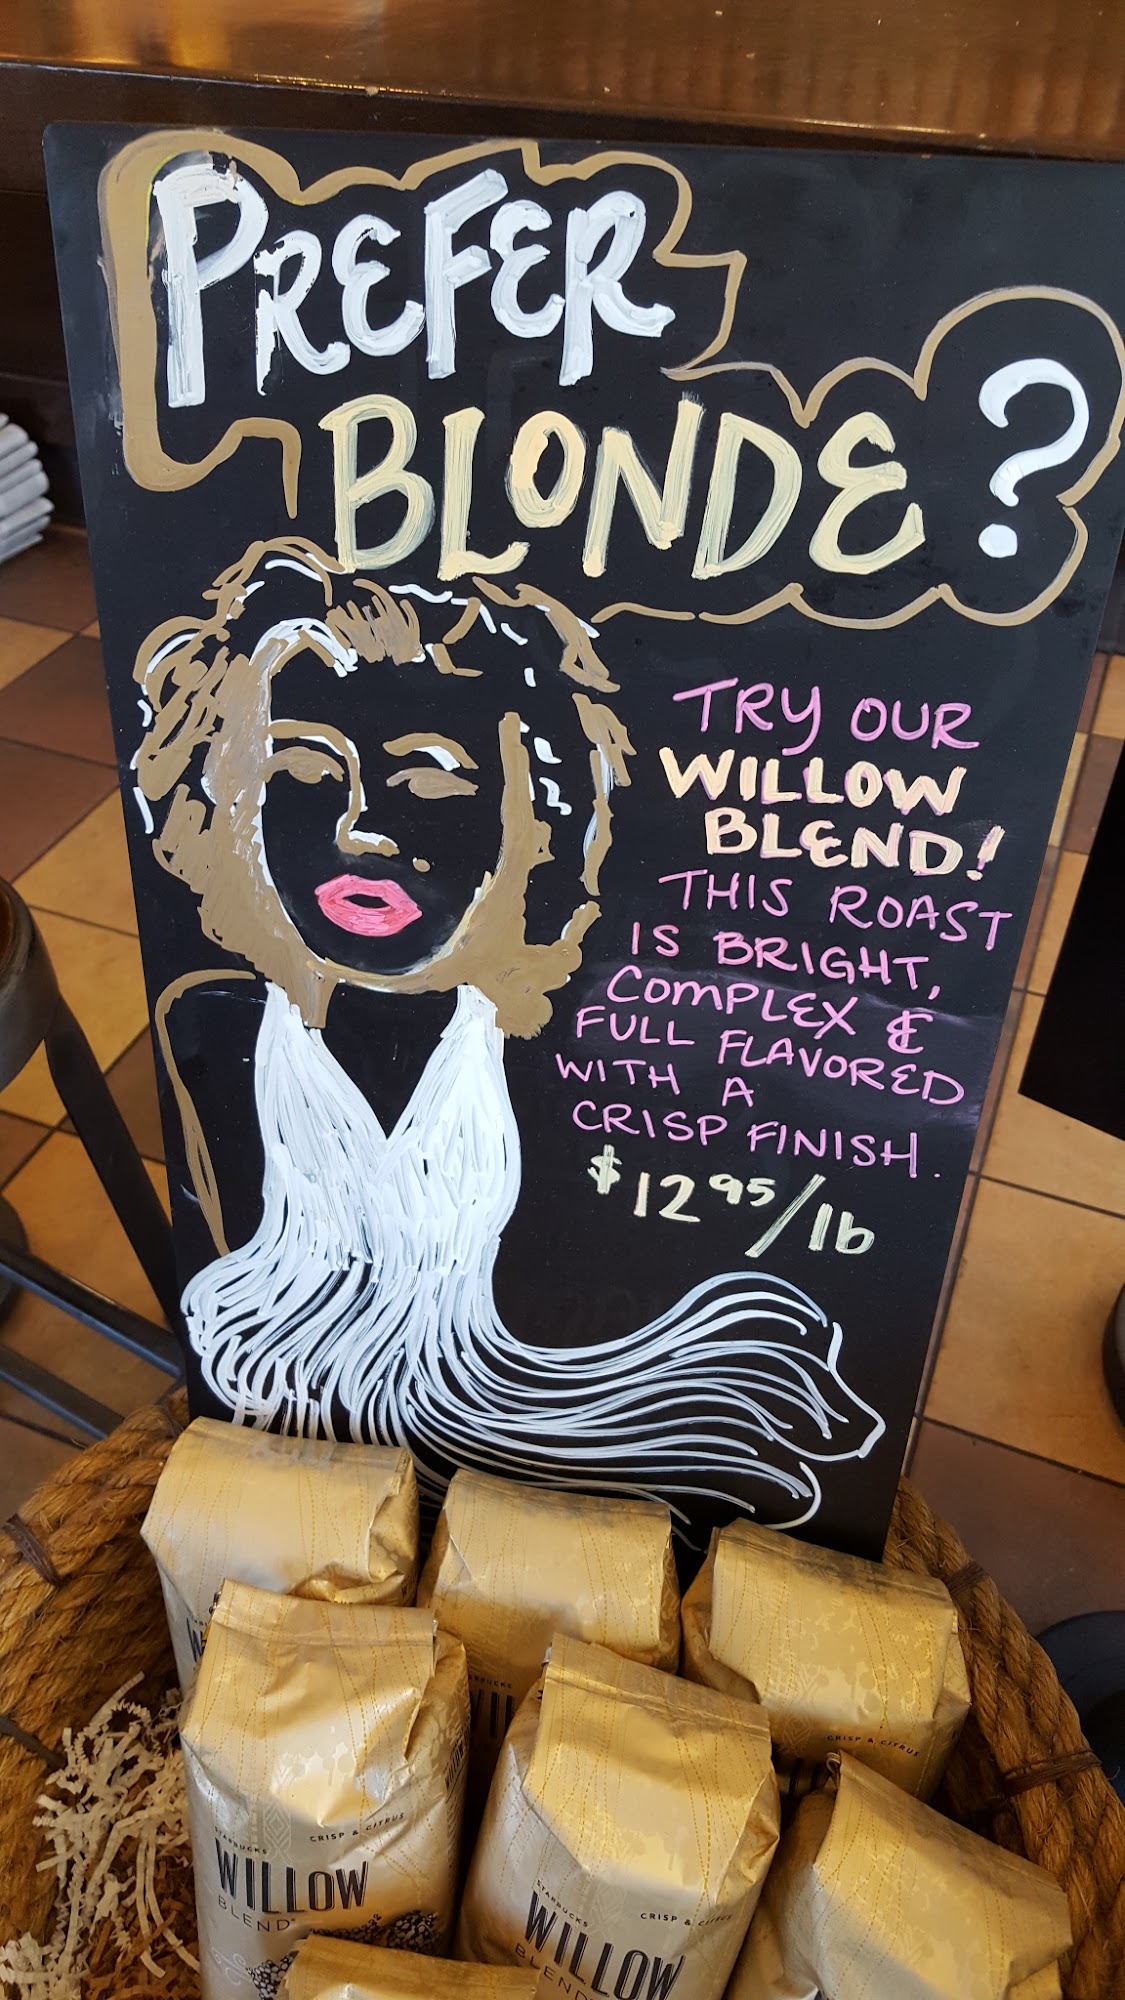 PREFER
BLONDE?
TRY OUR
WILLOW
BLEND!
THIS ROAST
IS BRIGHT,
COMPLEX &
FULL FLAVORED
WITH A
CRISP FINISH.
$12.95/lb
CRISP & CITRUS
STARBUCKS
CRISP & CITRUS
WILLOW
BLEND
STARBUCKS
CRISP & CITRUS
WILLOW
BLEND